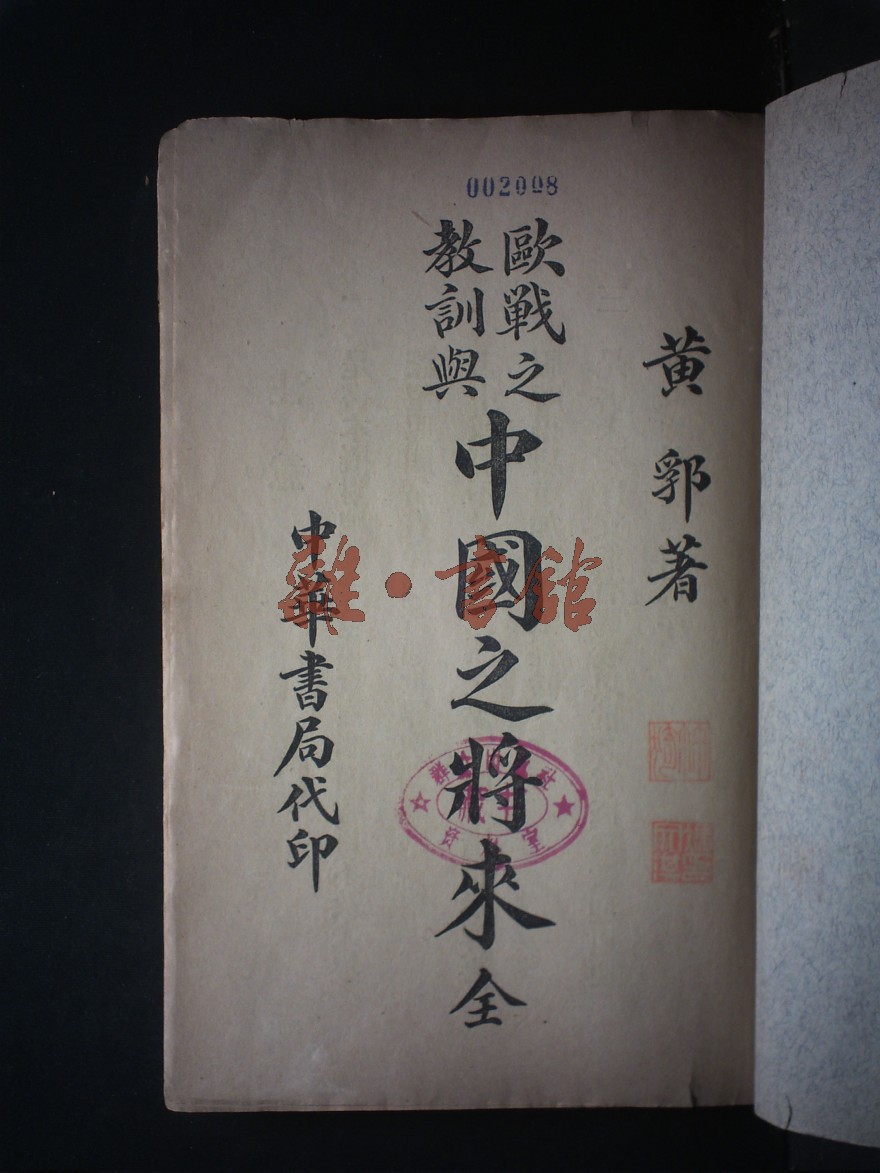 002008
黄郛著
歐戰之
教訓與
中國之將來全
中華書局代印
雜·書館